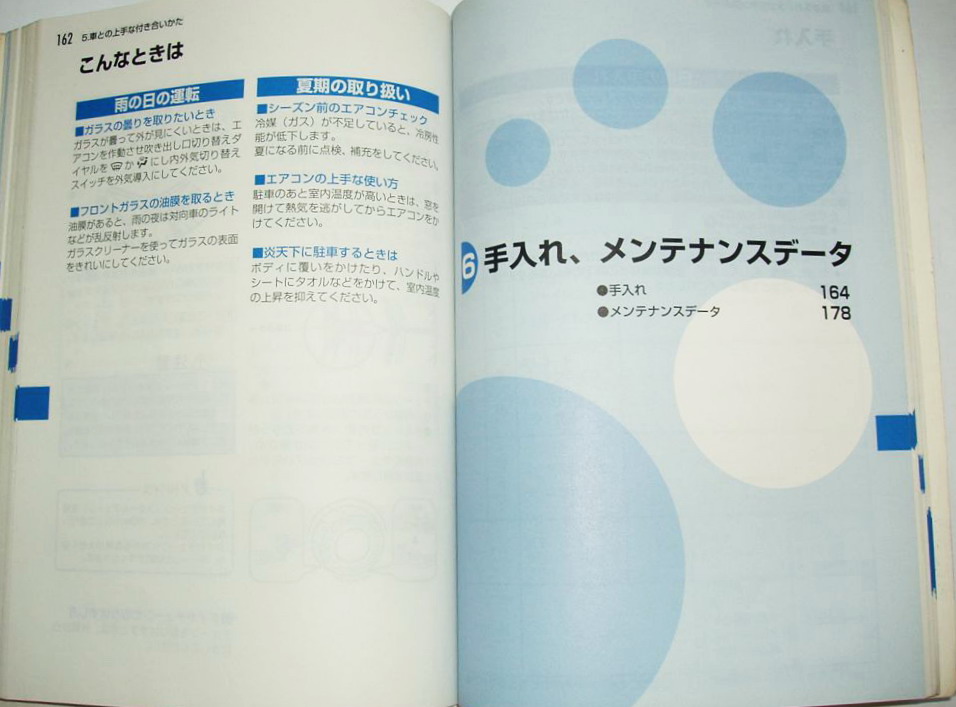 162 5.車との上手な付き合いかた
こんなときは
雨の日の運転
■ガラスの曇りを取りたいとき
ガラスが曇って外が見にくいときは、エ
アコンを作動させ吹き出し口切り替えダ
イヤルを か にし内外気切り替え
スイッチを外気導入にしてください。
■フロントガラスの油膜を取るとき
油膜があると、雨の夜は対向車のライト
などが乱反射します。
ガラスクリーナーを使ってガラスの表面
をきれいにしてください。
夏期の取り扱い
■シーズン前のエアコンチェック
冷媒（ガス）が不足していると、冷房性
能が低下します。
夏になる前に点検、補充をしてください。
■エアコンの上手な使い方
駐車のあと室内温度が高いときは、窓を
開けて熱気を逃がしてからエアコンをか
けてください。
■炎天下に駐車するときは
ボディに覆いをかけたり、ハンドルや
シートにタオルなどをかけて、室内温度
の上昇を抑えてください。
6 手入れ、メンテナンスデータ
●手入れ 164
●メンテナンスデータ 178